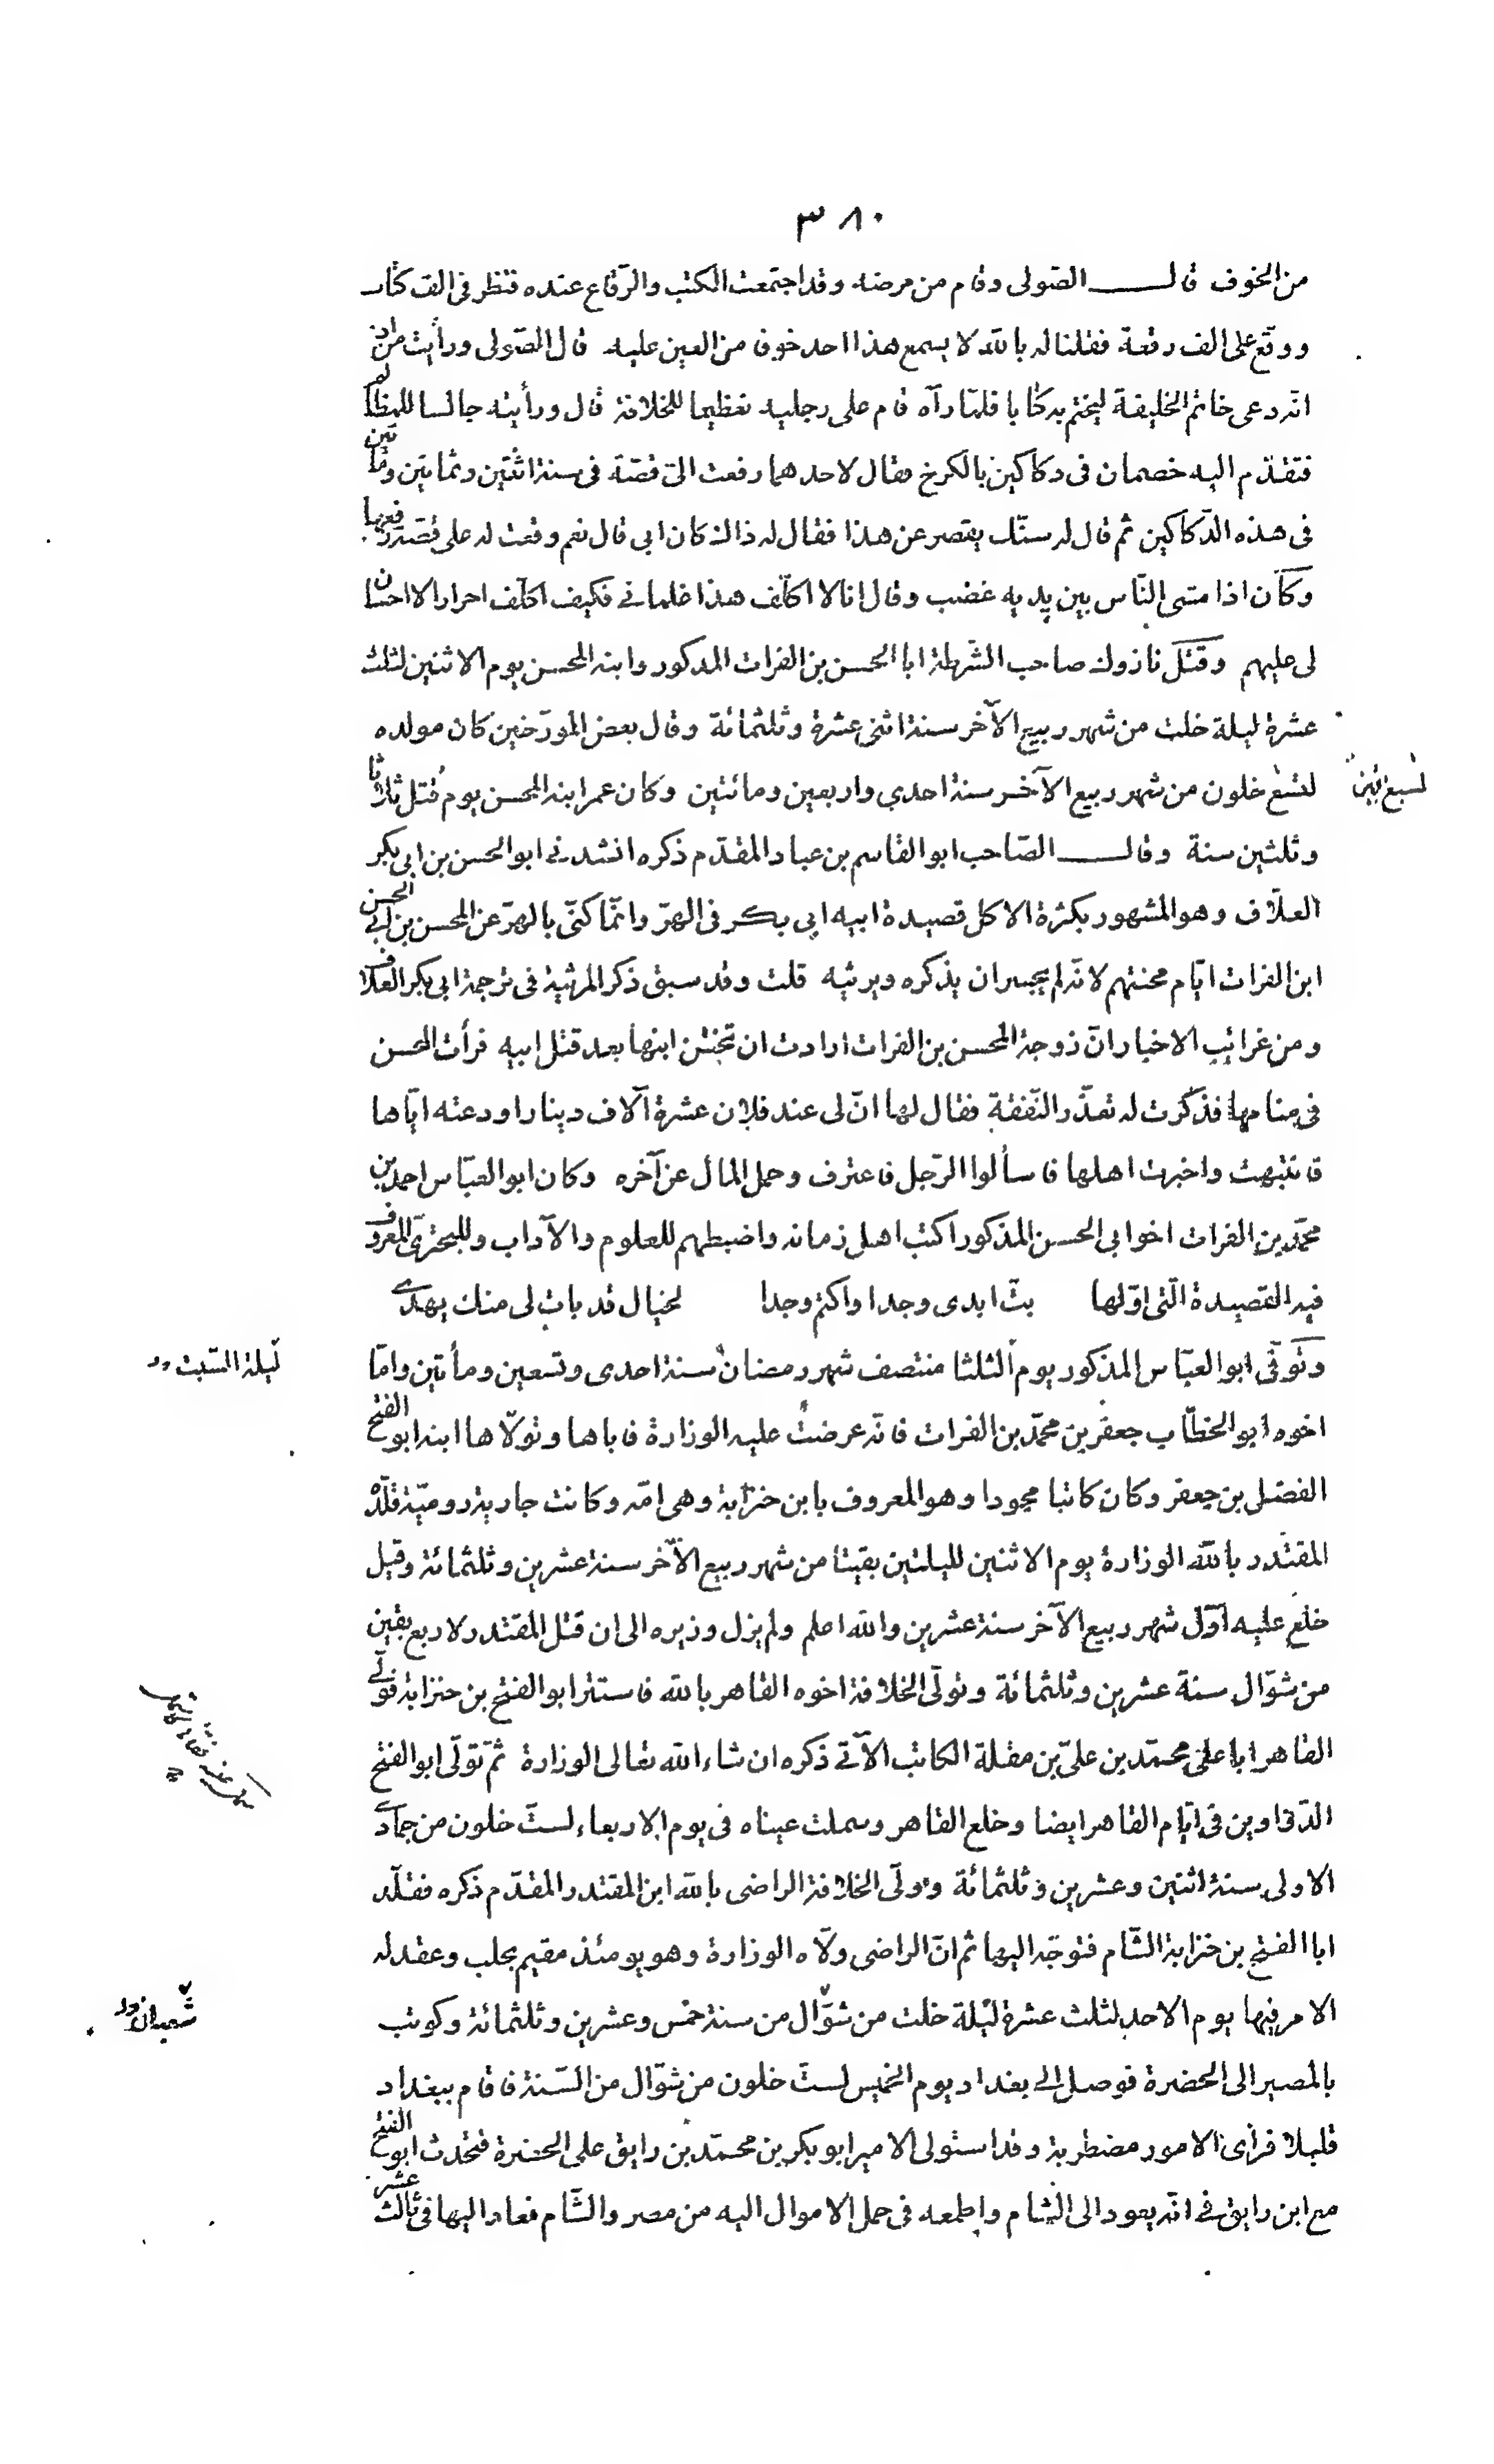 ٣٨٠
من الخوف قال الصّولى وقام من مرضه وقد اجتمعت الكتب والرّقاع عنده فنظر فى الف كتاب
ووقّع على الف رقعة فقلنا له بالله لا يسمع هذا احد خوفا من العين عليه قال الصّولى ورأيت من ادبه
انّه دعى خاتم الخليفة ليختم به كتابا فلمّا رآه قام على رجليه تعظيما للخلافة قال ورأيته جالسا للمظالم
فتقدّم اليه خصمان فى دكاكين بالكرخ فقال لاحدهما رفعت الىّ قصّة فى سنة اثنتين وثمانين ومائتين
فى هذه الدّكاكين ثم قال له سنّك يقصر عن هذا فقال له ذاك كان ابى قال نعم وقعت له على قصّة رفعها
وكان اذا مشى النّاس بين يديه غضب وقال انا لا اكلّف هذا غلمانى فكيف اكلّف احرارا لا احسان
لى عليهم وقتل نازوك صاحب الشّرطة ابا الحسن بن الفرات المذكور وابنه المحسن يوم الاثنين لثلث
عشرة ليلة خلت من شهر ربيع الآخر سنة اثنى عشرة وثلثمائة وقال بعض المورّخين كان مولده
لتسع خلون من شهر ربيع الآخر سنة احدى واربعين ومائتين وكان عمر ابنه المحسن يوم قتل ثلاثا
لسبع بقين
وثلثين سنة وقال الصّاحب ابو القاسم بن عباد المقدّم ذكره انشدنى ابو الحسن بن ابى بكر
العلّاف وهو المشهور بكثرة الاكل قصيدة ابيه ابى بكر فى الهرّ وانّما كنّى بالهرّ عن المحسن بن ابى الحسن
ابن الفرات ايّام محنتهم لانّه لم يجسر ان يذكره ويرثيه قلت وقد سبق ذكر المرثية فى ترجمة ابى بكر العلّاف
ومن غرائب الاخبار انّ زوجة المحسن بن الفرات ارادت ان تختن ابنها بعد قتل ابيه فرأت المحسن
فى منامها فذكرت له تعذّر النّفقة فقال لها انّ لى عند فلان عشرة آلاف دينار اودعته ايّاها
فانتبهت واخبرت اهلها فسألوا الرّجل فاعترف وحمل المال عن آخره وكان ابو العبّاس احمد بن
محمّد بن الفرات اخو ابى الحسن المذكور اكتب اهل زمانه واضبطهم للعلوم والآداب وللبحترىّ المعروف
فيه القصيدة الّتى اوّلها بتّ ابدى وجدا واكتم وجدا لخيال قد بات لى منك يهدى
وتوفّى ابو العبّاس المذكور يوم الثلثا منتصف شهر رمضان سنة احدى وتسعين ومأتين وامّا
ليلة السّبت
اخوه ابو الخطّاب جعفر بن محمّد بن الفرات فانّه عرضت عليه الوزارة فاباها وتولّاها ابنه ابو الفتح
الفضل بن جعفر وكان كاتبا مجودا وهو المعروف بابن خنزابة وهى امّه وكانت جارية روميّة قلّده
المقتدر بالله الوزارة يوم الاثنين لليلتين بقيتا من شهر ربيع الآخر سنة عشرين وثلثمائة وقيل
خلع عليه اوّل شهر ربيع الآخر سنة عشرين والله اعلم ولم يزل وزيره الى ان قتل المقتدر لاربع بقين
من شوّال سنة عشرين وثلثمائة وتولّى الخلافة اخوه القاهر بالله فاستتر ابو الفتح بن حنزابة فولّى
القاهر ابا على محمّد بن علىّ بن مقلة الكاتب الآتى ذكره ان شاء الله تعالى الوزارة ثمّ تولّى ابو الفتح
الدّواوين فى ايّام القاهر ايضا وخلع القاهر وسملت عيناه فى يوم الاربعاء لستّ خلون من جمادى
الاولى سنة اثنتين وعشرين وثلثمائة وولّى الخلافة الراضى بالله ابن المقتدر المقدّم ذكره فقلّد
ابا الفتح بن خنزابة الشّام فتوجّه اليها ثم انّ الراضى ولّاه الوزارة وهو يومئذ مقيم بحلب وعقد له
الامر فيها يوم الاحد لثلث عشرة ليلة خلت من شوّال من سنة خمس وعشرين وثلثمائة وكوتب
شعبان
بالمصير الى الحضرة فوصل الى بغداد يوم الخميس لستّ خلون من شوّال من السّنة فاقام ببغداد
قليلا فرأى الامور مضطربة وقد استولى الامير ابو بكر بن محمّد بن رايق على الحضرة فتحدث ابو الفتح
مع ابن رايق فى انّه يعود الى الشام واطمعه فى حمل الاموال اليه من مصر والشّام فعاد اليها فى ثالث عشر